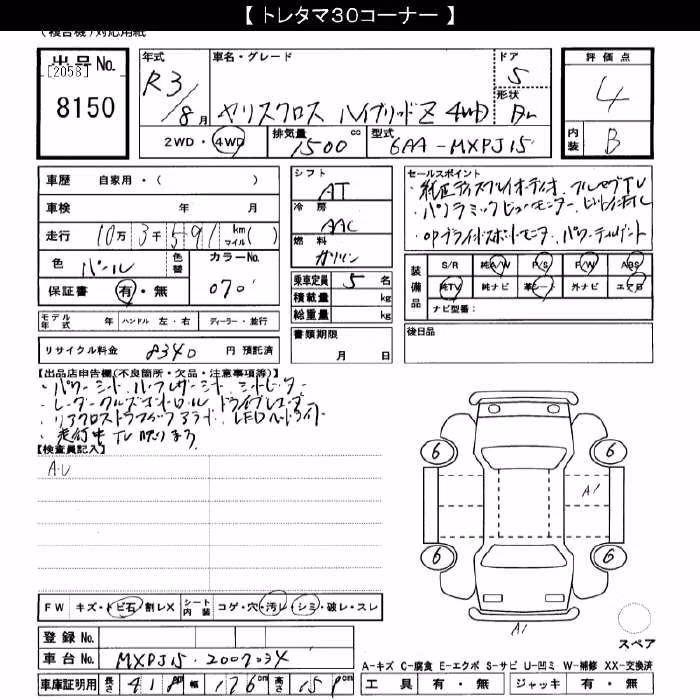 【 トレタマ30コーナー 】
(検合機)対応用紙
出品No.
[2058]
8150
年式 車名・グレード ドア 評価点
R3/8月 ヤリスクロス ハイブリッドZ 4WD 5
形状
4
2WD・4WD 排気量 1500 cc 型式 6AA-MXPJ15
内装 B
車歴 自家用・( )
車検 年 月
走行 10万3千591 km マイル( )
色 パール 色替 カラーNo. 070
保証書 有・無
シフト AT
冷房 AAC
燃料 ガソリン
乗車定員 5 名
積載量 kg
総重量 kg
セールスポイント
・純正ディスプレイオーディオ、フルセグTV
・パノラミックビューモニター、
・OPブラインドスポットモニタ、パワーテールゲート
装備品 S/R 純A/W P/S P/W ABS
純TV 純ナビ 革シート 外ナビ エアB
ナビ型番:
モデル年式 年 ハンドル 左・右 ディーラー・並行
リサイクル料金 8340 円 預託済
書類期限
月 日
後日品
【出品店申告欄(不良箇所・欠品・注意事項等)】
・パワーシート、ハーフレザーシート、シートヒーター
・レーダークルーズコントロール、ドライブレコーダー
・リアクロストラフィックアラート、LEDヘッドライト
・走行中TV映ります
【検査員記入】
A・U
6 6
A1
6 6
A1
スペア
FW キズ・トビ石・割レX シート内装 コゲ・穴・汚レ・シミ・破レ・スレ
登録No.
車台No. MXPJ15-2007034
車庫証明用 長さ 418 cm 幅 176 cm 高さ 159 cm
A-キズ C-腐食 E-エクボ S-サビ U-凹ミ W-補修 XX-交換済
工具 有・無 ジャッキ 有・無